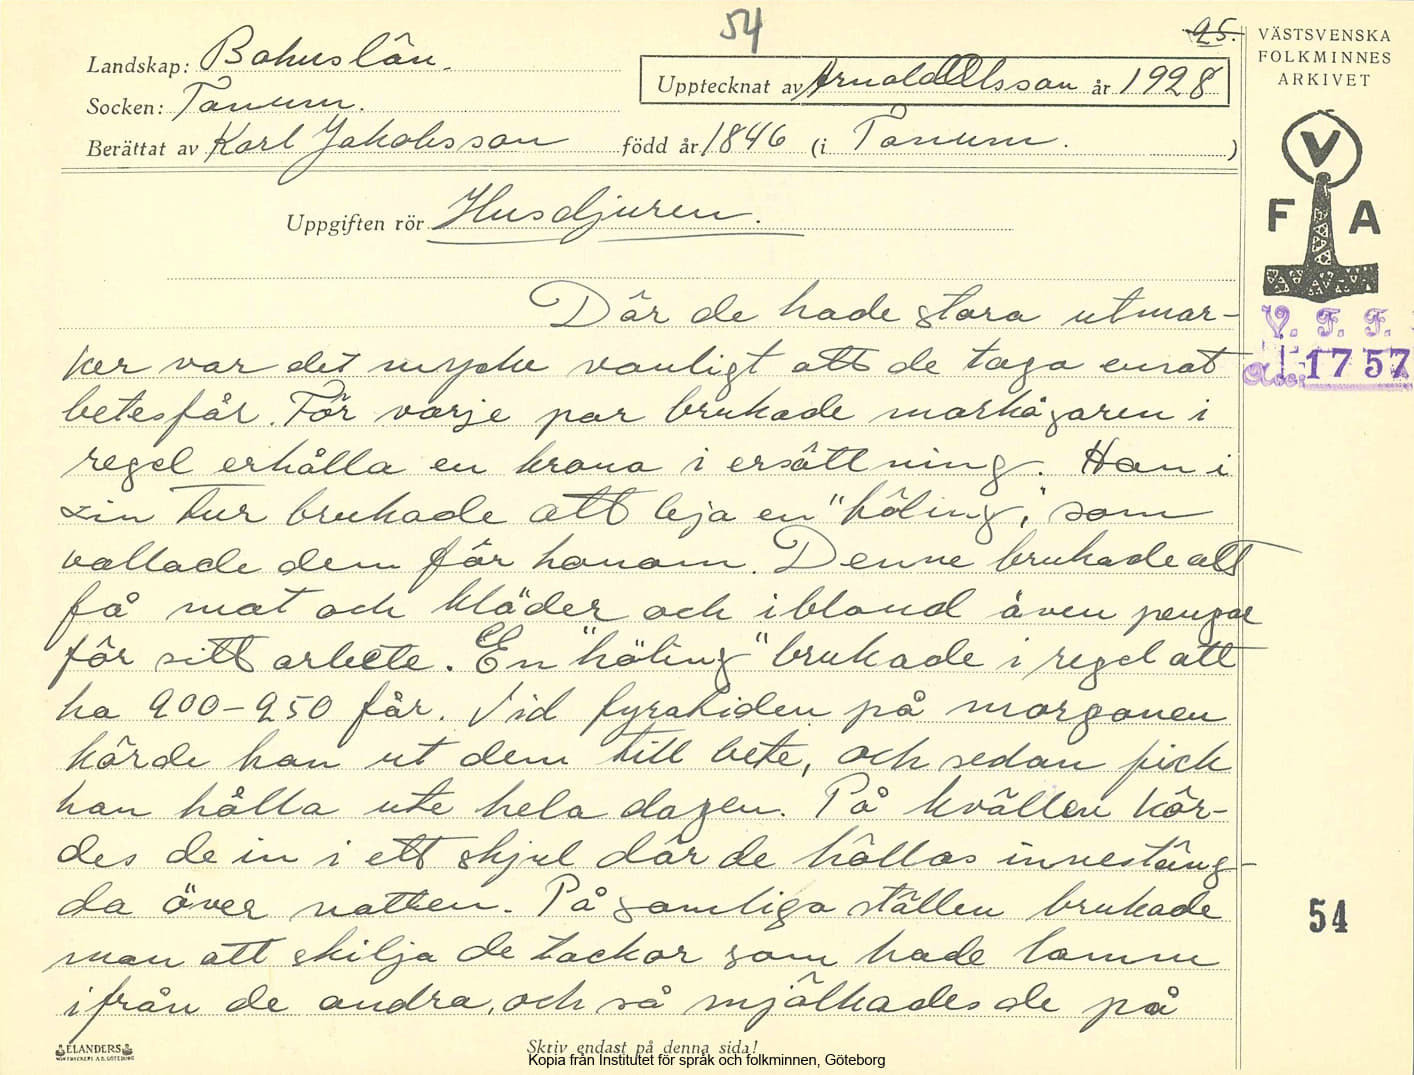 54
25.
VÄSTSVENSKA
FOLKMINNES
ARKIVET
Landskap: Bohuslän.
Upptecknat av Arnold Olsson år 1928
Socken: Tanum.
Berättat av Karl Jakobsson född år 1846 (i Tanum.)
V
F A
Uppgiften rör Husdjuren.
Där de hade stora utmar-
V. F. F.
ker var det mycke vanligt att de taga emot
Acc. 1757
betesfår. För varje par brukade markägaren i
regel erhålla en krona i ersättning. Han i
sin tur brukade att leja en "höling", som
vallade dem för honom. Denne brukade att
få mat och kläder och ibland även pengar
för sitt arbete. En "höling" brukade i regel att
ha 200-250 får. Vid fyratiden på morgonen
körde han ut dem till bete, och sedan fick
han hålla ute hela dagen. På kvällen kör-
des de in i ett skjul där de hölls innestäng-
da över natten. På somliga ställen brukade
54
man att skilja de tackor som hade lamm
ifrån de andra, och så mjölkades de på
ELANDERS
Skriv endast på denna sida!
Kopia från Institutet för språk och folkminnen, Göteborg